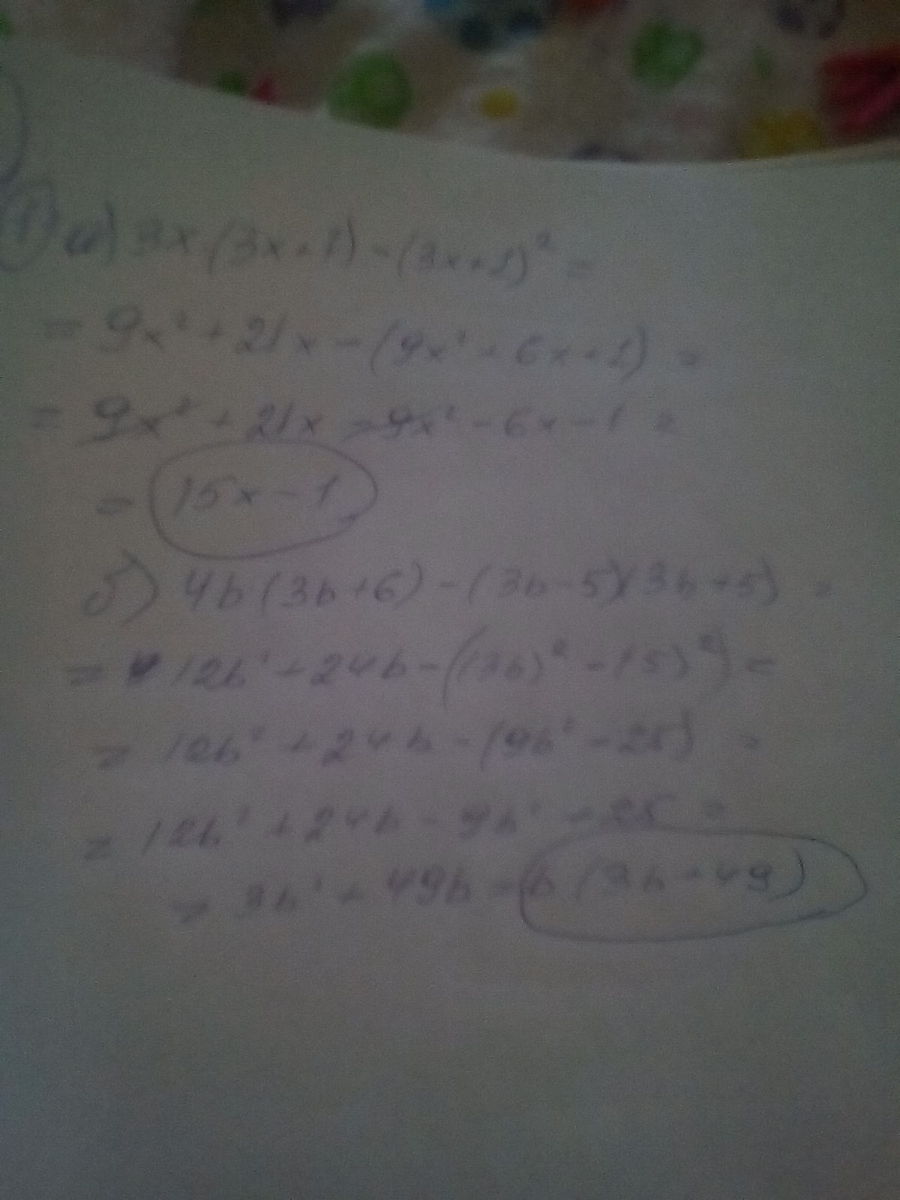 1) а) 3x (3x+1) - (3x+1)² =
= 9x² + 21x - (9x² + 6x + 1) =
= 9x² + 21x - 9x² - 6x - 1 =
= 15x - 1
б) 4b (3b+6) - (3b-5)(3b+5) =
= 12b² + 24b - ((3b)² - (5)²) =
= 12b² + 24b - (9b² - 25) =
= 12b² + 24b - 9b² + 25 =
= 3b² + 49b = b (3b + 49)